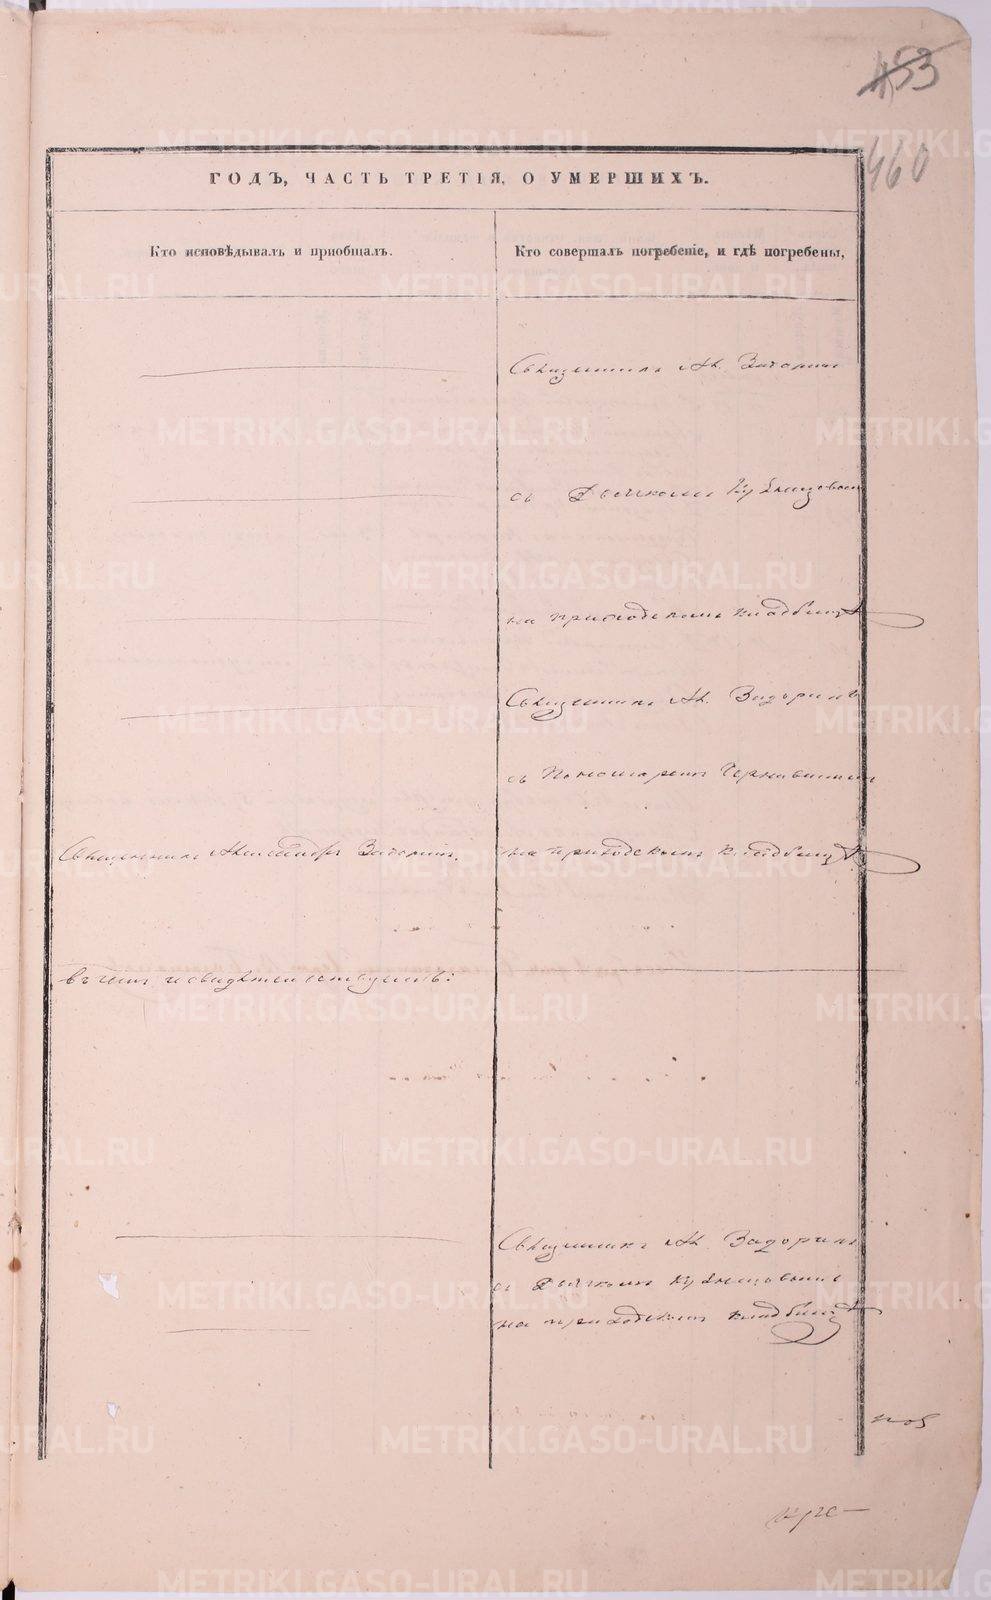 453
460
ГОДЪ, ЧАСТЬ ТРЕТІЯ, О УМЕРШИХЪ.
Кто исповѣдывалъ и приобщалъ.
Кто совершалъ погребеніе, и гдѣ погребены,
Священникъ Ал. Задоринъ
съ Дьячкомъ Кузнецовымъ
на приходскомъ кладбищѣ
Священникъ Ал. Задоринъ
съ Пономаремъ
Священникъ Александръ Задоринъ.
на приходскомъ кладбищѣ.
въ чемъ и свидѣтельствуетъ:
Священникъ Ал. Задоринъ
съ Дьячкомъ Кузнецовымъ
на приходскомъ кладбищѣ
METRIKI.GASO-URAL.RU